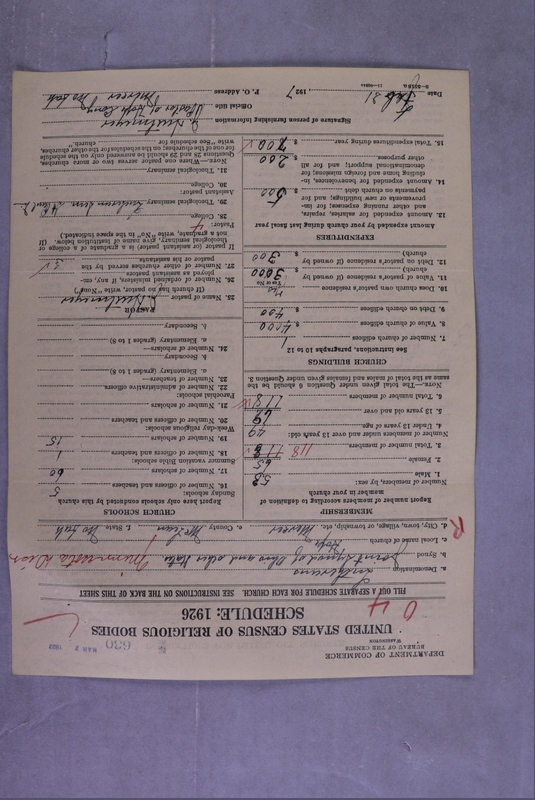 DEPARTMENT OF COMMERCE
BUREAU OF THE CENSUS
WASHINGTON
630
UNITED STATES CENSUS OF RELIGIOUS BODIES
SCHEDULE: 1926
FILL OUT A SEPARATE SCHEDULE FOR EACH CHURCH. SEE INSTRUCTIONS ON THE BACK OF THIS SHEET
a. Denomination Lutherans
b. Synod Joint Synod of Ohio and other States
c. Local name of church Hope
d. City, town, village, or township, etc. Mercer e. County McLean f. State No Dak
MEMBERSHIP
Report number of members according to definition of member in your church
Number of members, by sex:
1. Male 53
2. Female 65
3. Total number of members 118
Number of members under and over 13 years old:
4. Under 13 years of age 49
5. 13 years old and over 69
6. Total number of members 118
NOTE.—The total given under Question 6 should be the same as the total of males and females given under Question 3.
CHURCH BUILDINGS
See instructions, paragraphs 10 to 12
7. Number of church edifices 1
8. Value of church edifices $ 4000
9. Debt on church edifices $ 400
10. Does church own pastor's residence Yes
Yes or No
11. Value of pastor's residence (if owned by church) $ 3000
12. Debt on pastor's residence (if owned by church) $ 300
EXPENDITURES
Amount expended by your church during last fiscal year
13. Amount expended for salaries, repairs, and other running expenses; for improvements or new buildings; and for payments on church debt $ 500
14. Amount expended for benevolences, including home and foreign missions; for denominational support; and for all other purposes 200
15. Total expenditures during year $ 700
CHURCH SCHOOLS
Report here only schools conducted by this church
Sunday schools:
16. Number of officers and teachers 5
17. Number of scholars 60
Summer vacation Bible schools:
18. Number of officers and teachers 1
19. Number of scholars 15
Week-day religious schools:
20. Number of officers and teachers
21. Number of scholars
Parochial schools:
22. Number of administrative officers
23. Number of teachers—
a. Elementary (grades 1 to 8)
b. Secondary
24. Number of scholars—
a. Elementary (grades 1 to 8)
b. Secondary
PASTOR
25. Name of pastor
(If church has no pastor, write "None")
26. Number of other ministers, if any, employed as assistant pastors
27. Number of other churches served by the pastor or his assistants 3
If pastor (or assistant pastor) is a graduate of a college or theological seminary, give name of institution below. (If not a graduate, write "No" in the space indicated.)
Pastor:
28. College
29. Theological seminary
Assistant pastor:
30. College
31. Theological seminary
NOTE.—Where one pastor serves two or more churches, Questions 28 and 29 should be answered only on the schedule for one of the churches; on the schedules for the other churches, write "See schedule for church."
Signature of person furnishing information
Official title Pastor of Hope Cong
P. O. Address Mercer No Dak
Date Feb 21, 1927